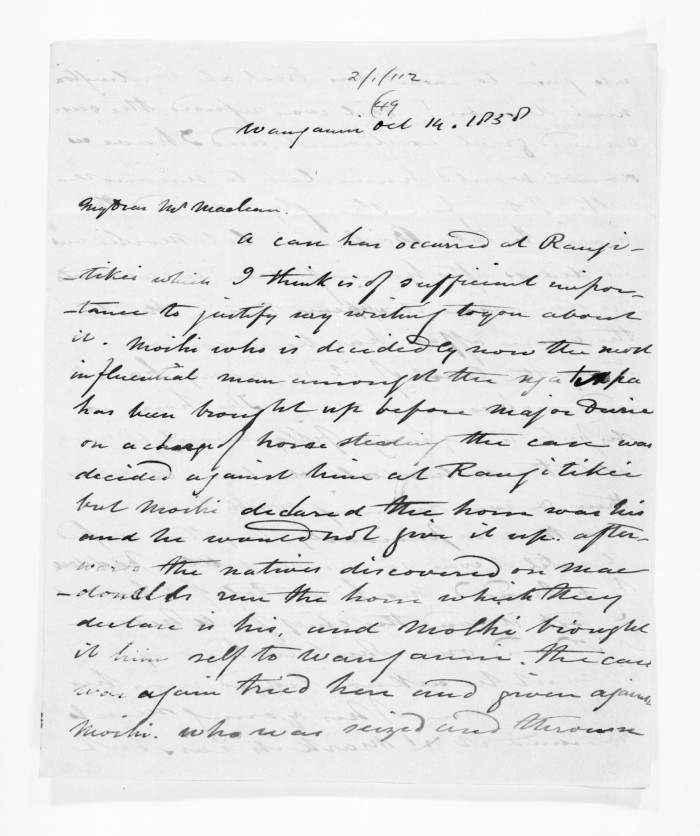 2/1/112
49
Wanganui Oct 14. 1858
My Dear Mr Maclean.
A case has occurred at Rangi-
-tikei which I think is of sufficient impor-
-tance to justify my writing to you about
it. Moihi who is decidedly now the most
influential man amongst the nga
has been brought up before Major Durie
on a charge of horse stealing the case was
decided against him at Rangitikei
but Moihi declared the horse was his
and he would not give it up. after-
the natives discovered on Mac
-donalds run the horse which they
declare is his, and Moihi brought
it him self to Wanganui. the case
was again tried here and given against
Moihi. who was seized and thrown